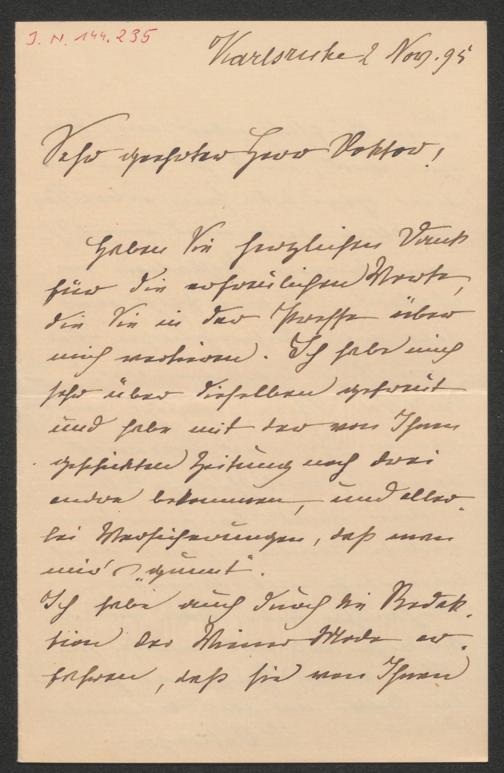 J. N. 144.235
Karlsruhe 2 Nov. 95
Sehr geehrter Herr Doktor!
Haben Sie herzlichen Dank
für die erfreulichen Worte,
die Sie in der Presse über
mich verlieren. Ich habe mich
sehr über dieselben gefreut
und habe mit der von Ihnen
geschickten Zeitung noch drei
andre bekommen, und aller-
lei Versicherungen, daß man
mir's „gunnt“.
Ich habe auch durch die Redak-
tion der Wiener Mode er-
fahren, daß sie von Ihnen